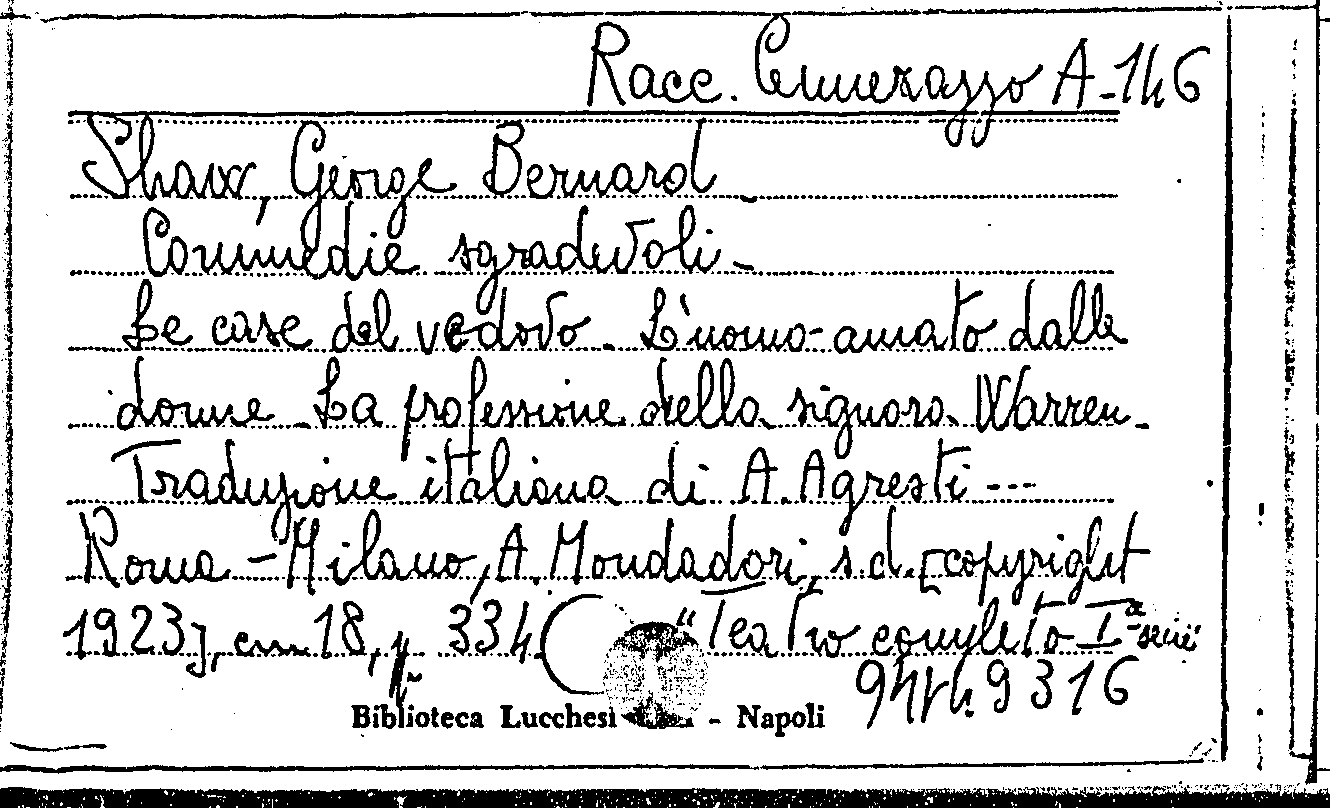 Racc. Cenerazzo A-146
Shaw, George Bernard
Commedie sgradevoli-
Le case del vedovo. L'uomo amato dalle
donne - La professione della signora Warren.
Traduzione italiana di A. Agresti ---
Roma - Milano, A. Mondadori, s.d. [copyright
1923], cm 18, p. 334. "Teatro completo Iª serie"
9316
Biblioteca Lucchesi - Napoli